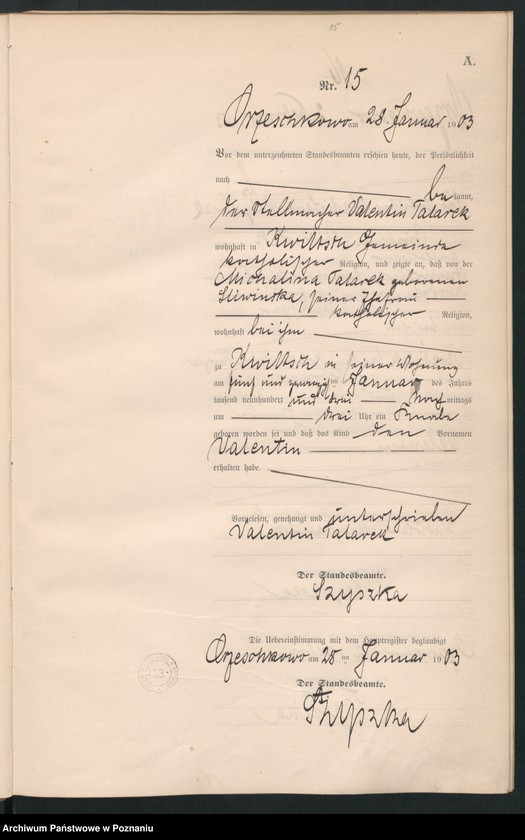 15
A.
Nr. 15
Orzeschkowo am 28. Januar 1903
Vor dem unterzeichneten Standesbeamten erschien heute, der Persönlichkeit
nach be kannt,
der Stellmacher Valentin Tatarek
wohnhaft in Kwiltsch Gemeinde
katholischer Religion, und zeigte an, daß von der
Michalina Tatarek geborenen
Sliwinska, seiner Ehefrau
katholischer Religion,
wohnhaft bei ihm
zu Kwiltsch in seiner Wohnung
am fünf und zwanzigsten Januar des Jahres
tausend neunhundert und drei Nachmittags
um drei Uhr ein Knabe
geboren worden sei und daß das Kind den Vornamen
Valentin
erhalten habe.
Vorgelesen, genehmigt und unterschrieben
Valentin Tatarek
Der Standesbeamte.
Szyszka
Die Uebereinstimmung mit dem Hauptregister beglaubigt
Orzeschkowo am 28 ten Januar 1903
Der Standesbeamte.
Szyszka
Archiwum Państwowe w Poznaniu